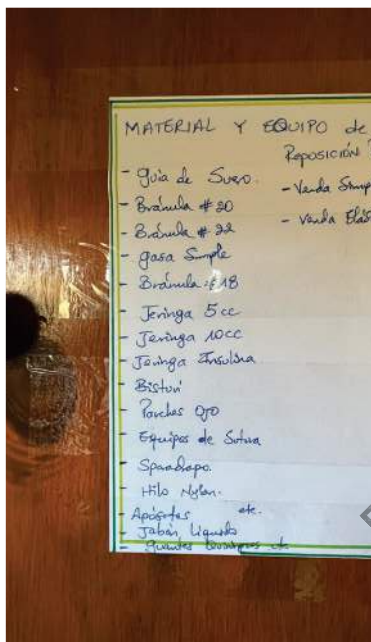 MATERIAL Y EQUIPO de
REPOSICIÓN
- Guia de Suero.
- Bránula # 20
- Bránula # 22
- gasa Simple
- Bránula # 18
- Jeringa 5 cc
- Jeringa 10 cc
- Jeringa Insulina
- Bisturi
- Parches Ojo
- Equipos de Sutura
- Sparadrapo.
- Hilo Nylon.
- Apósitos etc.
- Jabón Liquido
- guantes etc
- Venda Simp
- Venda Elás